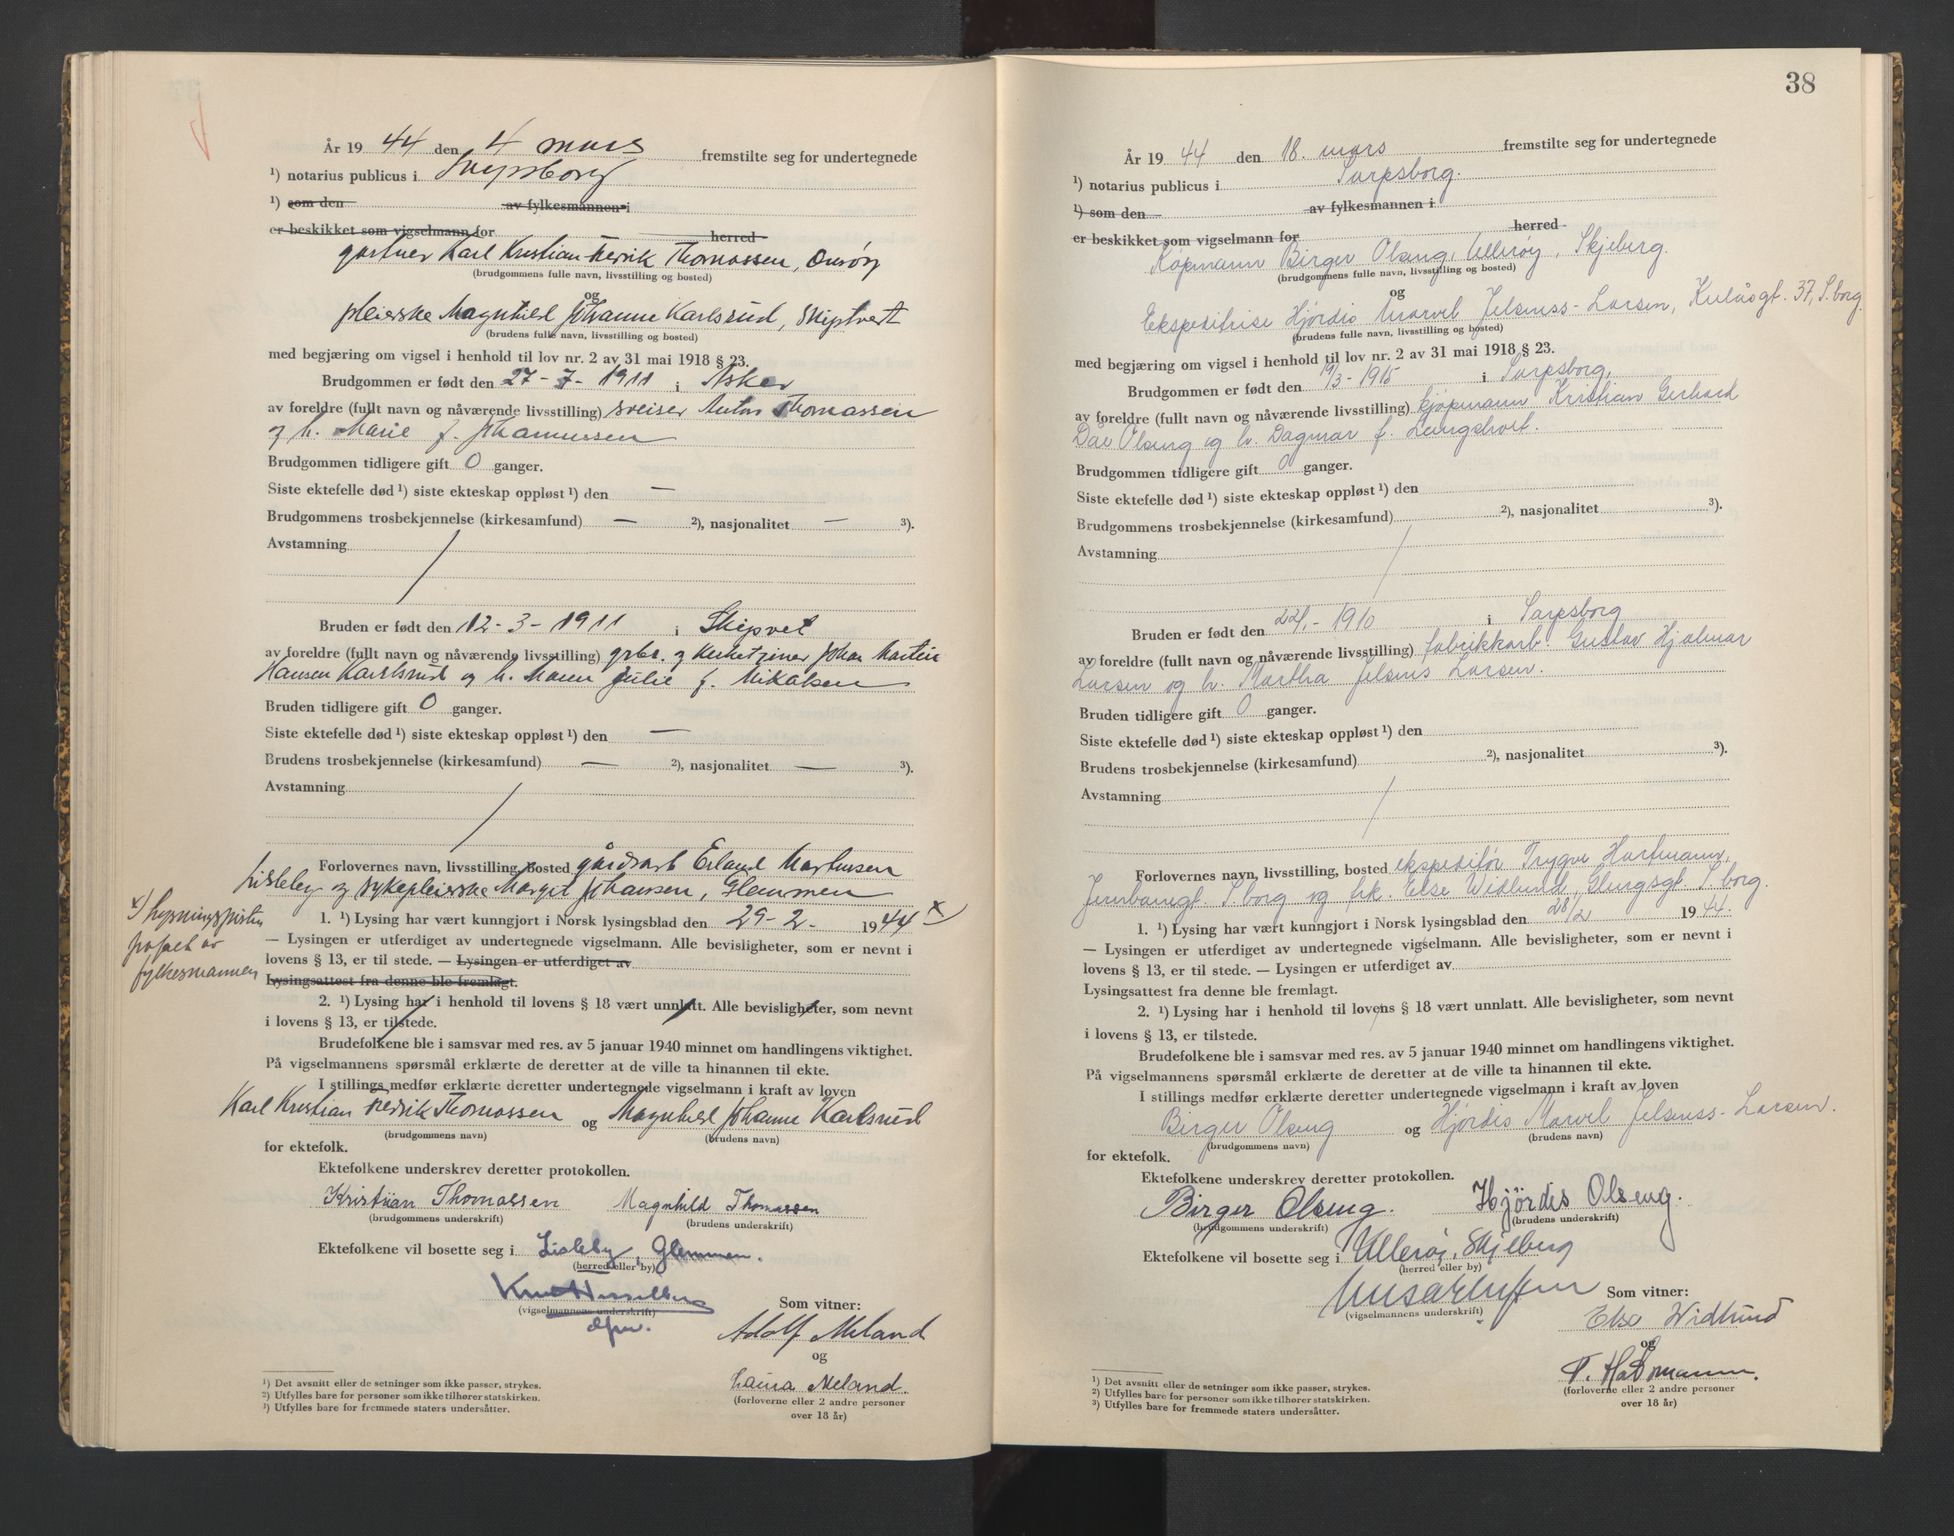 År 19 44 den 4 mars fremstilte seg for undertegnede
¹) notarius publicus i Sarpsborg
¹) som den av fylkesmannen i
er beskikket som vigselmann for herred
gartner Karl Kristian Fredrik Thomassen, Onsøy
(brudgommens fulle navn, livsstilling og bosted)
og
pleierske Magnhild Johanne Karlsrud, Skiptvet
(brudens fulle navn, livsstilling og bosted)
med begjæring om vigsel i henhold til lov nr. 2 av 31 mai 1918 § 23.
Brudgommen er født den 27-7-1911 i Asker
av foreldre (fullt navn og nåværende livsstilling) sveiser Anton Thomassen
og h. Marie f. Johannessen
Brudgommen tidligere gift 0 ganger.
Siste ektefelle død ¹) siste ekteskap oppløst ¹) den —
Brudgommens trosbekjennelse (kirkesamfund) — ²), nasjonalitet — ³).
Avstamning
Bruden er født den 12-3-1911 i Skipvet
av foreldre (fullt navn og nåværende livsstilling) grbr. og kirketjener Johan Martin
Hansen Karlsrud og h. Maren Julie f. Mikalsen
Bruden tidligere gift 0 ganger.
Siste ektefelle død ¹) siste ekteskap oppløst ¹) den —
Brudens trosbekjennelse (kirkesamfund) — ²), nasjonalitet — ³).
Avstamning
Forlovernes navn, livsstilling, bosted gårdsarb Erland Martinsen
Lisleby og sykepleierske Margit Johansen, Glemmen
1. ¹) Lysing har vært kunngjort i Norsk lysingsblad den 29-2- 1944 x)
x) Lysningsfristen
av
fylkesmannen
— Lysingen er utferdiget av undertegnede vigselmann. Alle bevisligheter, som er nevnt i
lovens § 13, er til stede. — Lysingen er utferdiget av
Lysingsattest fra denne ble fremlagt.
2. ¹) Lysing har i henhold til lovens § 18 vært unnlatt. Alle bevisligheter, som nevnt
i lovens § 13, er tilstede.
Brudefolkene ble i samsvar med res. av 5 januar 1940 minnet om handlingens viktighet.
På vigselmannens spørsmål erklærte de deretter at de ville ta hinannen til ekte.
I stillings medfør erklærte deretter undertegnede vigselmann i kraft av loven
Karl Kristian Fredrik Thomassen og Magnhild Johanne Karlsrud
(brudgommens navn) (brudens navn)
for ektefolk.
Ektefolkene underskrev deretter protokollen.
Kristian Thomassen Magnhild Thomassen
(brudgommens underskrift) (brudens underskrift)
Ektefolkene vil bosette seg i Lisleby, Glemmen.
(herred eller by)
(vigselmannens underskrift)
Som vitner:
Adolf Meland
og
Laura Meland.
(forloverne eller 2 andre personer
over 18 år)
¹) Det avsnitt eller de setninger som ikke passer, strykes.
²) Utfylles bare for personer som ikke tilhører statskirken.
³) Utfylles bare for fremmede staters undersåtter.
38
År 19 44 den 18. mars fremstilte seg for undertegnede
¹) notarius publicus i Sarpsborg.
¹) som den av fylkesmannen i
er beskikket som vigselmann for herred
Køpmann Birger Olseng, Ullerøy, Skjeberg.
(brudgommens fulle navn, livsstilling og bosted)
og
Ekspeditrise Hjørdis Marvel Jelsness-Larsen, Kulåsgt. 37, S.borg.
(brudens fulle navn, livsstilling og bosted)
med begjæring om vigsel i henhold til lov nr. 2 av 31 mai 1918 § 23.
Brudgommen er født den 19/3-1915 i Sarpsborg,
av foreldre (fullt navn og nåværende livsstilling) kjøpmann Kristian Gerhard
Olseng og h. Dagmar f.
Brudgommen tidligere gift 0 ganger.
Siste ektefelle død ¹) siste ekteskap oppløst ¹) den
Brudgommens trosbekjennelse (kirkesamfund) ²), nasjonalitet ³).
Avstamning
Bruden er født den 1910 i Sarpsborg
av foreldre (fullt navn og nåværende livsstilling) fabrikkarb. Gustav Hjalmar
Larsen og h. Martha Jelsnes Larsen.
Bruden tidligere gift 0 ganger.
Siste ektefelle død ¹) siste ekteskap oppløst ¹) den
Brudens trosbekjennelse (kirkesamfund) ²), nasjonalitet ³).
Avstamning
Forlovernes navn, livsstilling, bosted ekspeditør Trygve Hartmann,
Jernbanegt. S.borg og frk. Else Widlund, Glengsgt. S.borg.
1. ¹) Lysing har vært kunngjort i Norsk lysingsblad den 28/2 1944.
— Lysingen er utferdiget av undertegnede vigselmann. Alle bevisligheter, som er nevnt i
lovens § 13, er til stede. — Lysingen er utferdiget av
Lysingsattest fra denne ble fremlagt.
2. ¹) Lysing har i henhold til lovens § 18 vært unnlatt. Alle bevisligheter, som nevnt
i lovens § 13, er tilstede.
Brudefolkene ble i samsvar med res. av 5 januar 1940 minnet om handlingens viktighet.
På vigselmannens spørsmål erklærte de deretter at de ville ta hinannen til ekte.
I stillings medfør erklærte deretter undertegnede vigselmann i kraft av loven
Birger Olseng og Hjørdis Marvel Jelsness-Larsen.
(brudgommens navn) (brudens navn)
for ektefolk.
Ektefolkene underskrev deretter protokollen.
Birger Olseng. Hjördis Olseng.
(brudgommens underskrift) (brudens underskrift)
Ektefolkene vil bosette seg i Ullerøy, Skjeberg
(herred eller by)
(vigselmannens underskrift)
Som vitner:
Else Widlund
og
T. Hartmann.
(forloverne eller 2 andre personer
over 18 år)
¹) Det avsnitt eller de setninger som ikke passer, strykes.
²) Utfylles bare for personer som ikke tilhører statskirken.
³) Utfylles bare for fremmede staters undersåtter.